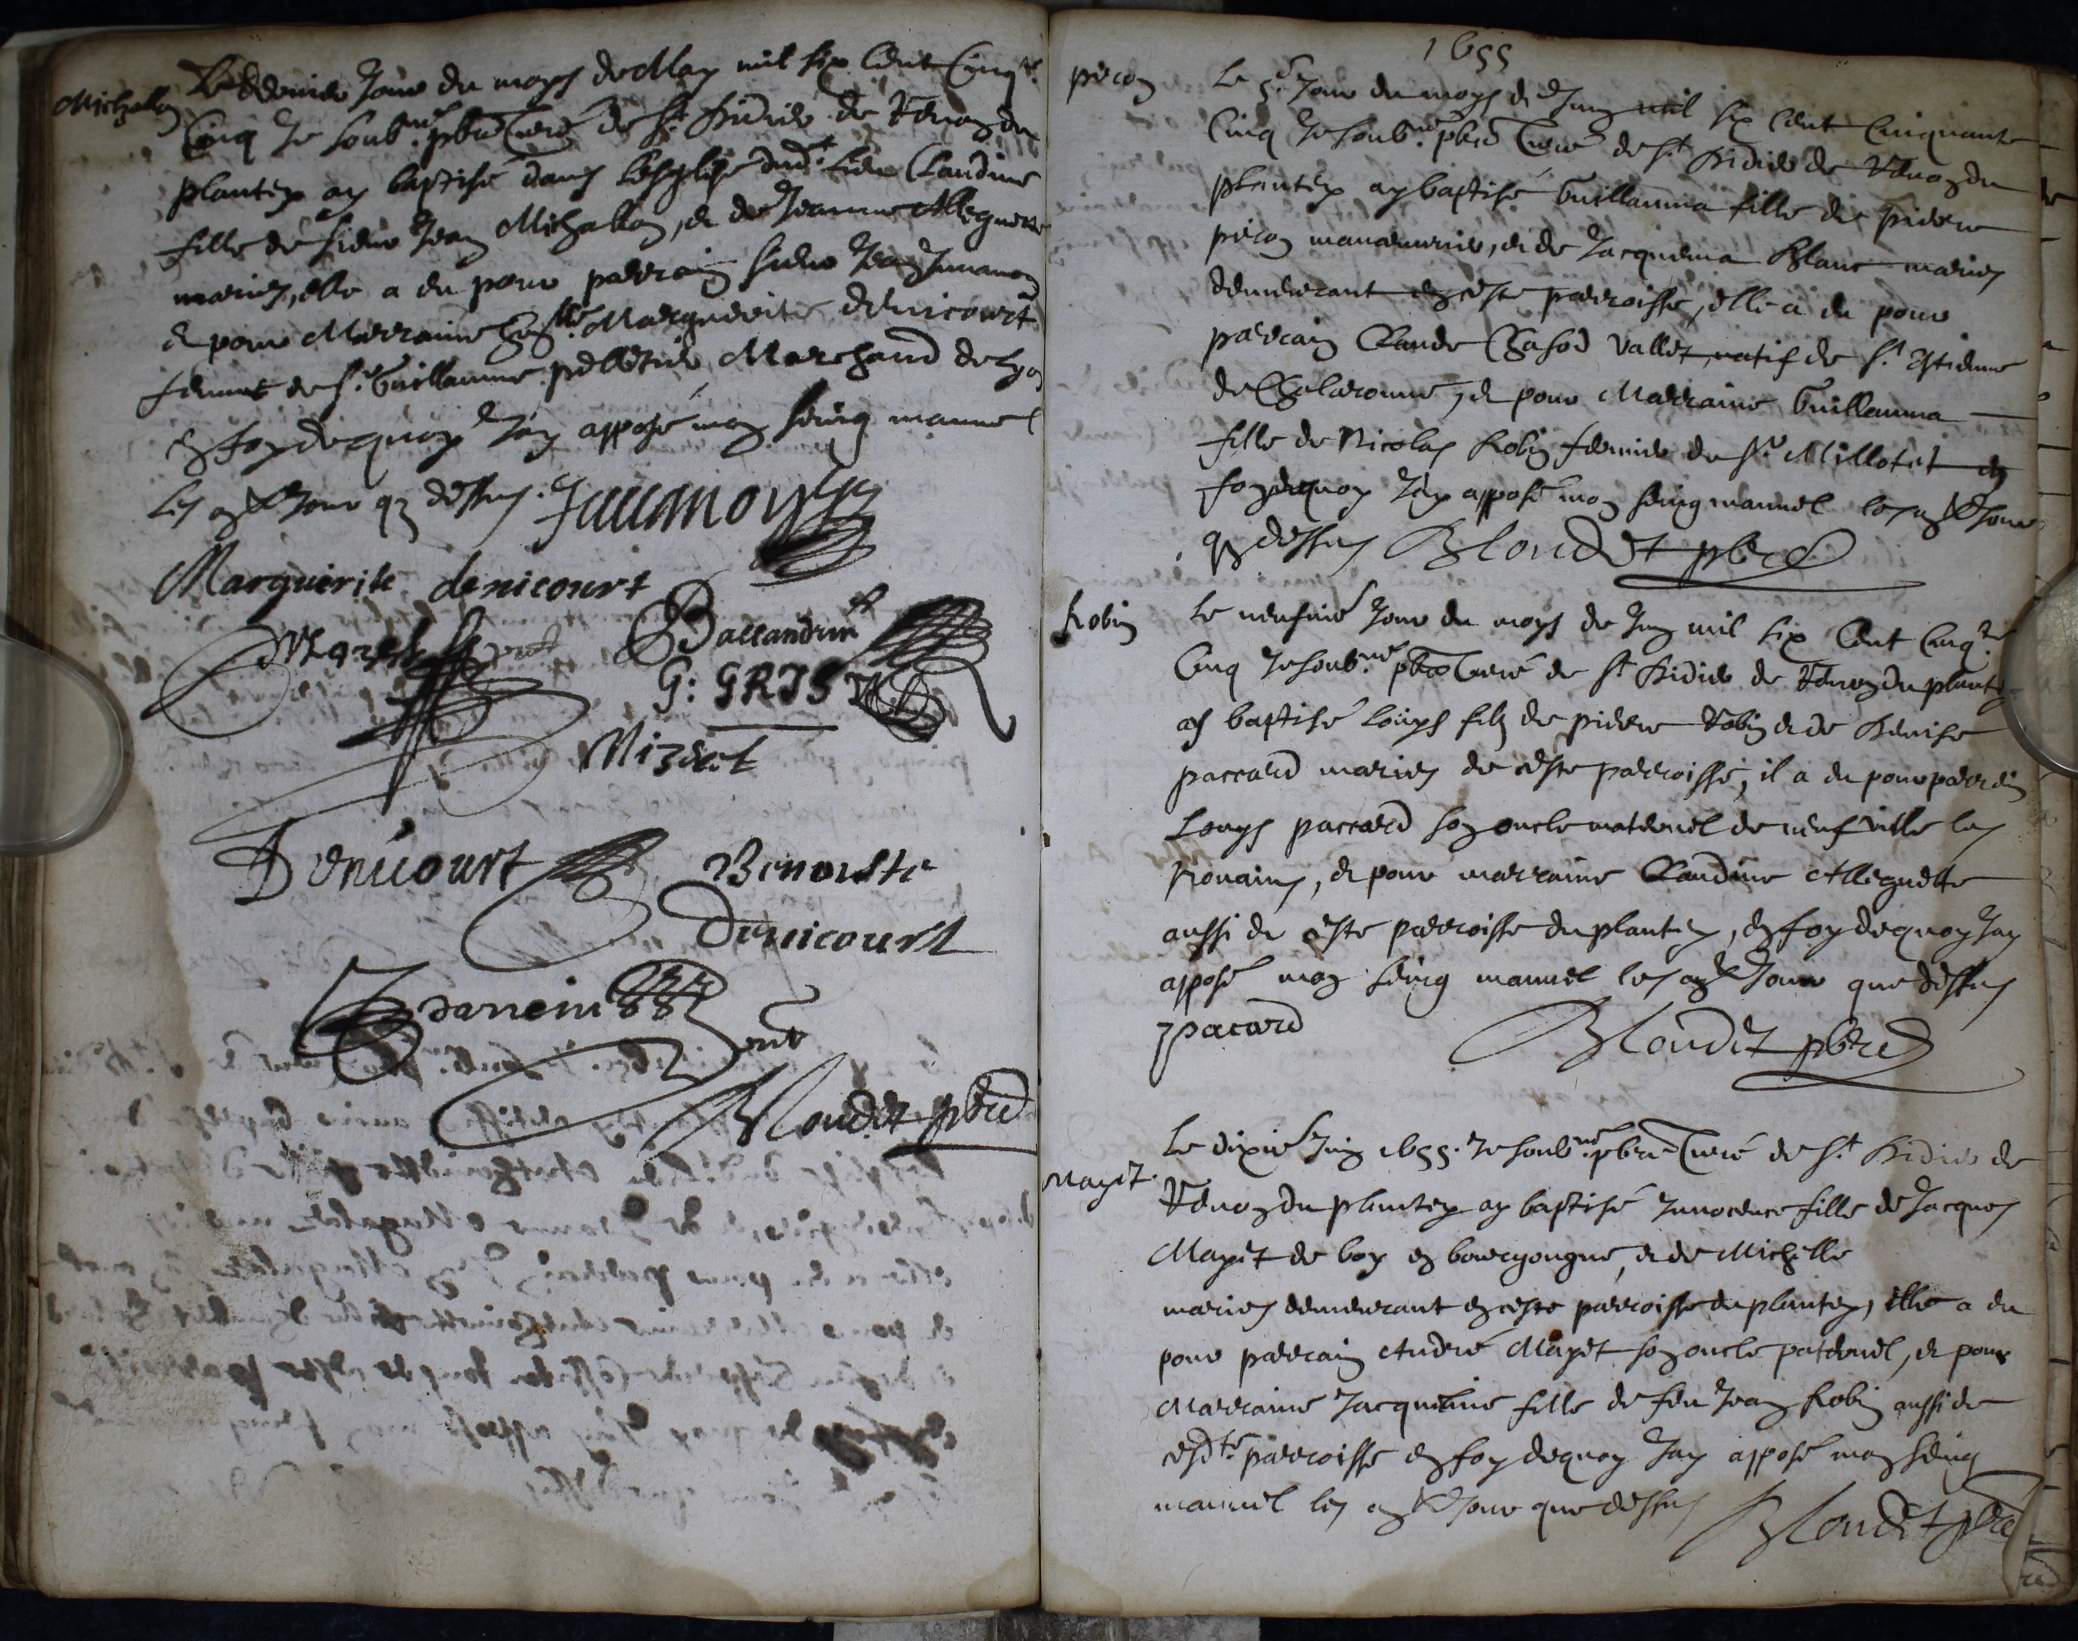 Michallon
Le dernier Jour du moys de May mil six Cent Cinq.te
Cinq Je soub.né pbre Curé de St Didier de Renon du
plantey ay baptisé dans lesglise dud.t lieu Claudine
fille de sieur Jean Michallon, et de Jeanne Alleguette
mariés, elle a eu pour parrain sieur Jean
et pour Marraine Marguerite denicourt
femme de sr. Guillaume pelletier Marchand de Lyon
en foy dequoy J'ay apposé mon seing manuel
les an et Jour que dessus.
Marguerite denicourt
Ballandrin
G: GRIS
Denicourt
Benoiste
Denicourt
Blondet pbre
1655
piron
Le 5.e Jour du moys de Juin mil six Cent Cinquante
Cinq Je soub.né pbre Curé de St Didier de Renon du
plantey ay baptisé Guillauma fille de pierre
piron manouvrier, et de Jacquema Blanc mariés
demeurant en ceste parroisse, elle a eu pour
parrain Claude Vallet, natif de St. Estienne
de Chalaronne, et pour Marraine Guillauma
fille de Nicolas Robin fermier de sr. Millotet en
foy dequoy J'ay apposé mon seing manuel les an et Jour
que dessus Blondet pbre
Robin
Le neufviè Jour du moys de Juin mil six Cent Cinq.te
Cinq Je soub.né pbre Curé de St Didier de Renon du plantey
ay baptisé Louys filz de pierre Robin et de Denise
paccard mariés de ceste parroisse, il a eu pour parrain
Louys paccard son oncle maternel de neufville les
Nonains, et pour marraine Claudine Alleguette
aussi de ceste parroisse du plantey, en foy dequoy J'ay
apposé mon seing manuel les an et Jour que dessus
pacard
Blondet pbre
Mayet
Le dixiè Juin 1655. Je soub.né pbre Curé de St Didier de
Renon du plantey ay baptisé Innocence fille de Jacques
Mayet de boy en bourgongne, et de Michelle
mariés demeurant en ceste parroisse du plantey, elle a eu
pour parrain André Mayet son oncle paternel, et pour
Marraine Jacqueline fille de feu Jean Robin aussi de
cesd.te parroisse en foy dequoy J'ay apposé mon seing
manuel les an et Jour que dessus
Blondet pbre